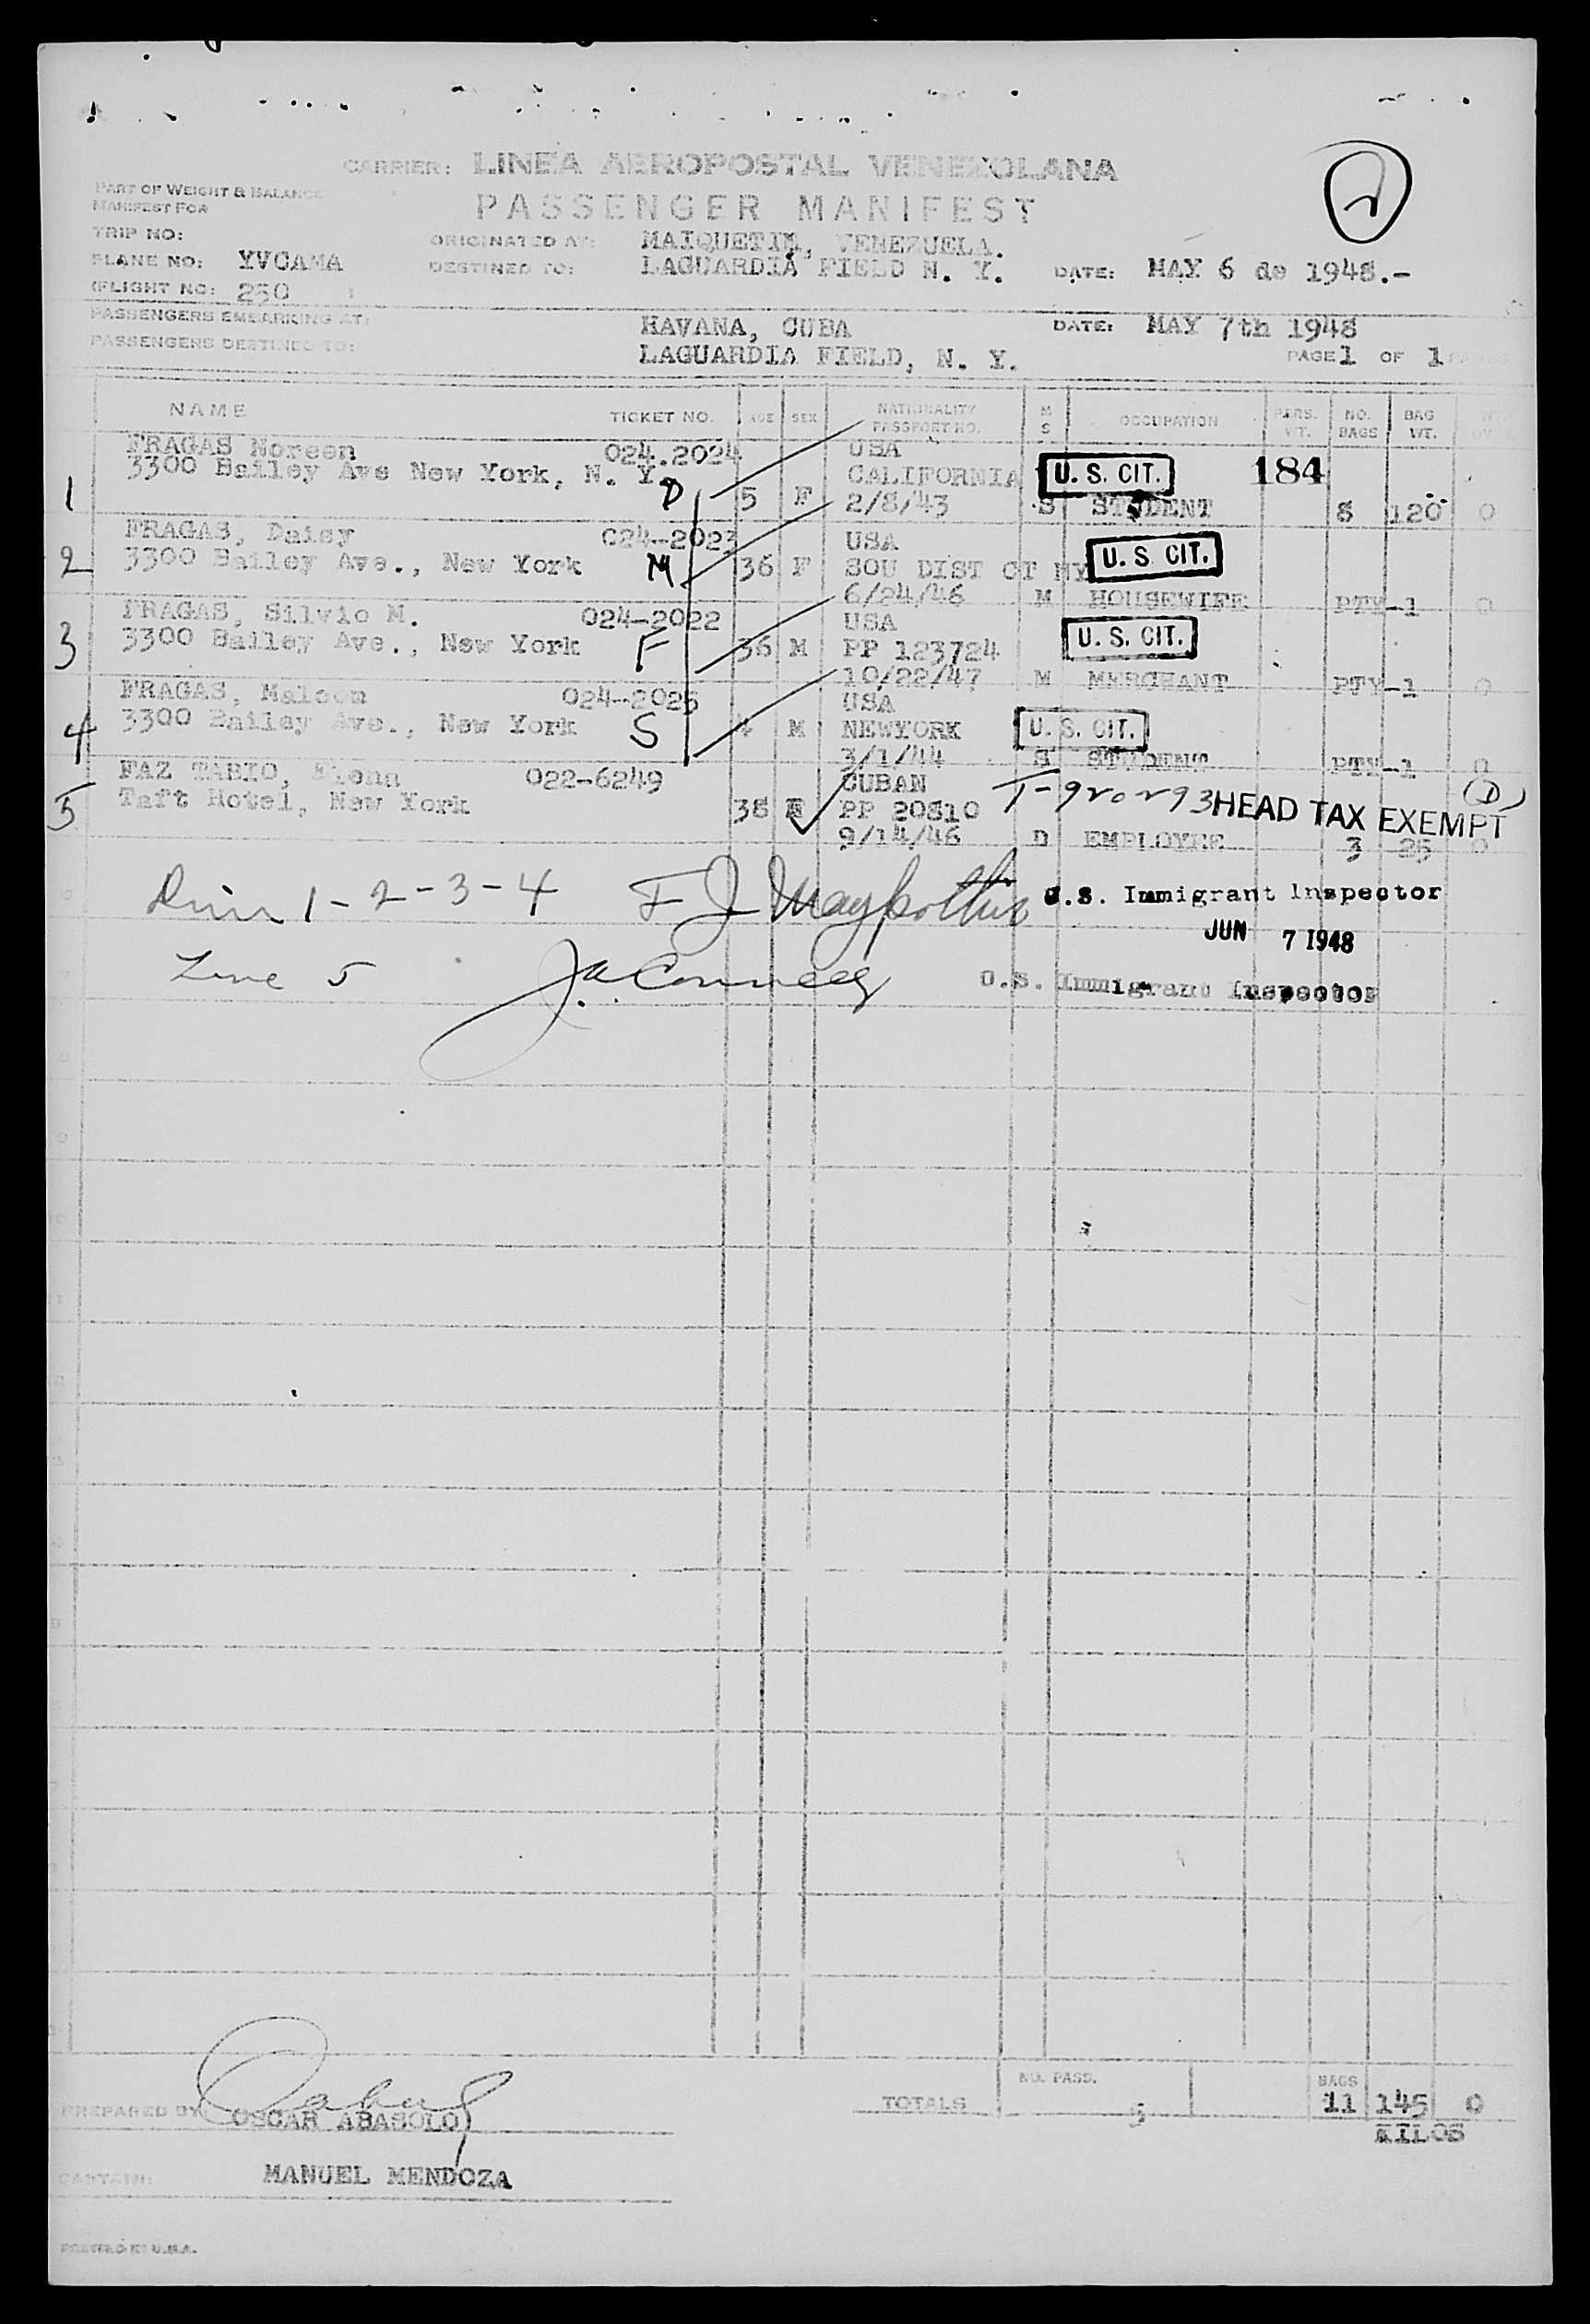 CARRIER: LINEA AEROPOSTAL VENEZOLANA
PART OF WEIGHT & BALANCE
MANIFEST FOR
PASSENGER MANIFEST
2
TRIP NO:
ORIGINATED AT: MAIQUETIA, VENEZUELA.
PLANE NO: YVCAMA
DESTINED TO: LAGUARDIA FIELD N. Y. DATE: MAY 6 de 1948.-
(FLIGHT NO: 250 )
PASSENGERS EMBARKING AT: HAVANA, CUBA DATE: MAY 7th 1948
PASSENGERS DESTINED TO: LAGUARDIA FIELD, N. Y. PAGE 1 OF 1 PAGES
NAME TICKET NO. AGE SEX NATIONALITY PASSPORT NO. M S OCCUPATION PARS. WT. NO. BAGS BAG WT.
FRAGAS Noreen 024.2024 USA
3300 Bailey Ave New York, N. Y. CALIFORNIA U. S. CIT. 184
1 D 5 F 2/8/43 S STUDENT 8 120 0
FRAGAS, Daisy 024-2023 USA
2 3300 Bailey Ave., New York M 36 F SOU DIST CT NY U. S. CIT.
6/24/46 M HOUSEWIFE PTY-1 0
FRAGAS, Silvio M. 024-2022 USA
3 3300 Bailey Ave., New York F 36 M PP 123724 U. S. CIT.
10/22/47 M MERCHANT PTY-1 0
FRAGAS, Malcom 024-2025 USA
4 3300 Bailey Ave., New York S 4 M NEWYORK U. S. CIT.
3/1/44 S STUDENT PTY-1 0
FAZ TABIO, Elena 022-6249 CUBAN
5 Taft Hotel, New York 38 F PP 20810 HEAD TAX EXEMPT (D)
9/14/46 D EMPLOYEE 3 25 0
1-2-3-4 F J U.S. Immigrant Inspector
JUN 7 1948
Line 5 U.S. Immigrant Inspector
NO. PASS. BAGS
TOTALS 5 11 145 0
KILOS
PREPARED BY OSCAR ABASOLO
CAPTAIN: MANUEL MENDOZA
PRINTED IN U.S.A.